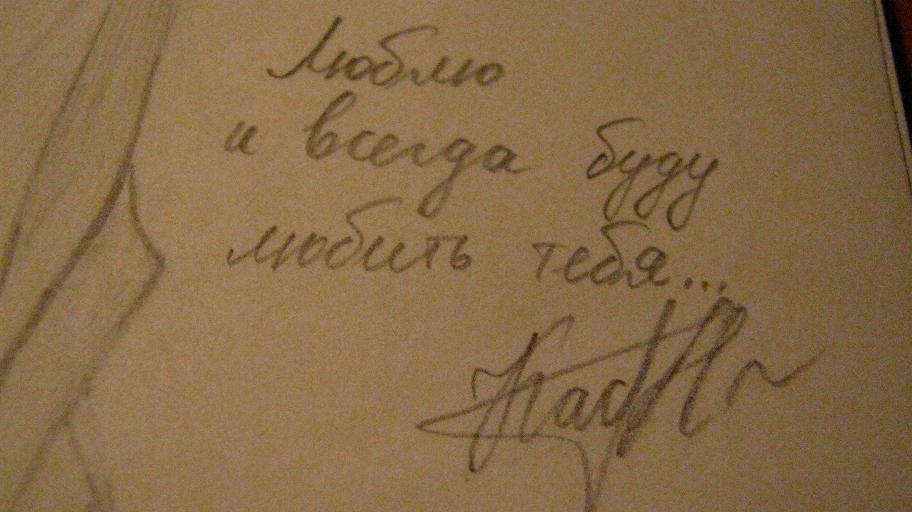 Люблю
и всегда буду
любить тебя...